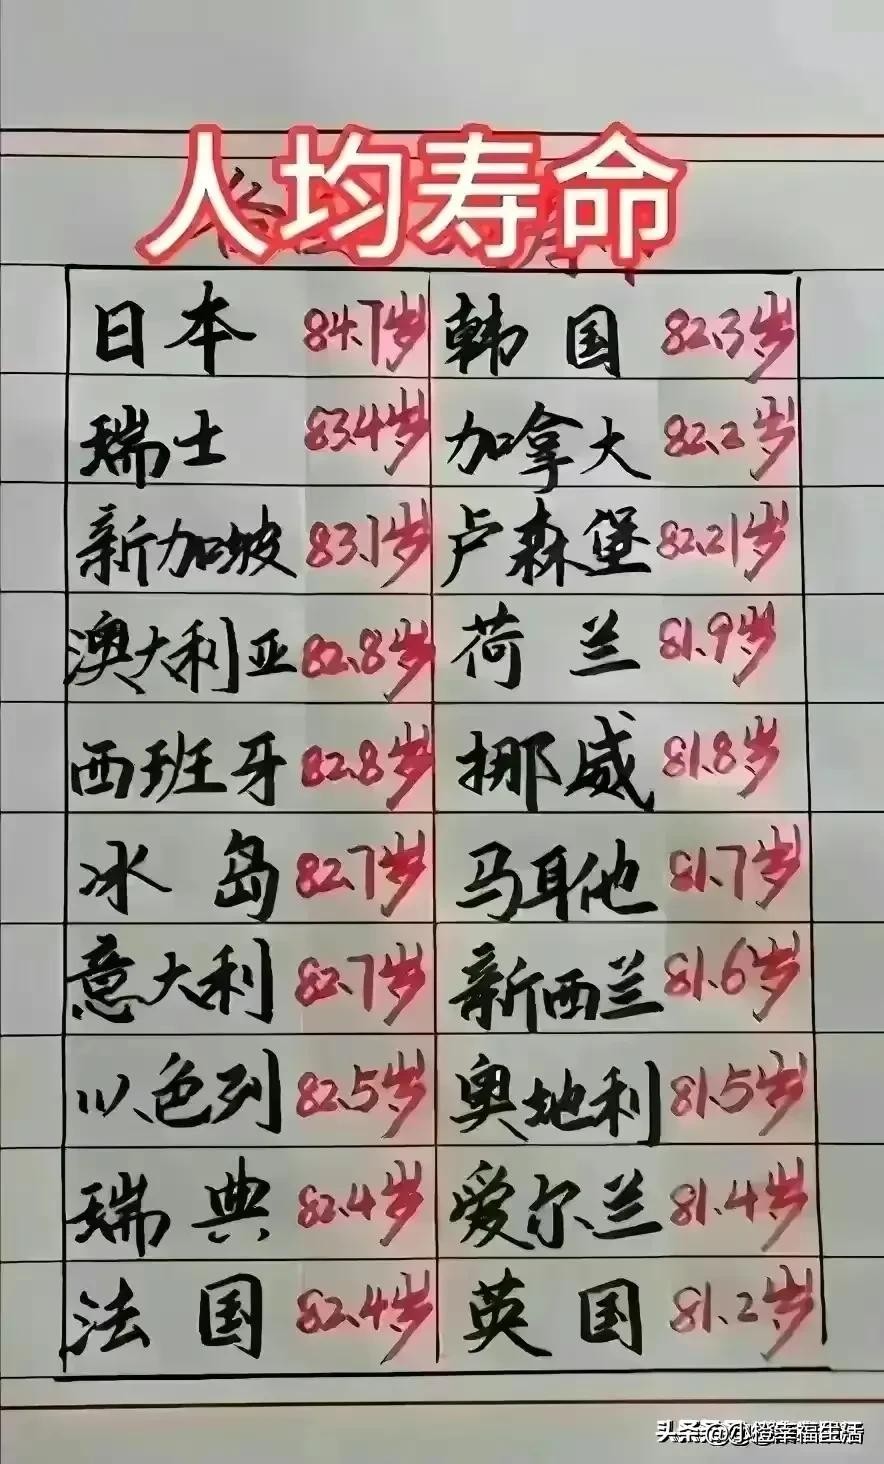 人均寿命
日本 84.7岁 韩国 82.3岁
瑞士 83.4岁 加拿大 82.2岁
新加坡 83.1岁 卢森堡 82.21岁
澳大利亚 82.8岁 荷兰 81.9岁
西班牙 82.8岁 挪威 81.8岁
冰岛 82.7岁 马耳他 81.7岁
意大利 82.7岁 新西兰 81.6岁
以色列 82.5岁 奥地利 81.5岁
瑞典 82.4岁 爱尔兰 81.4岁
法国 82.4岁 英国 81.2岁
头条 @小橙幸福生活